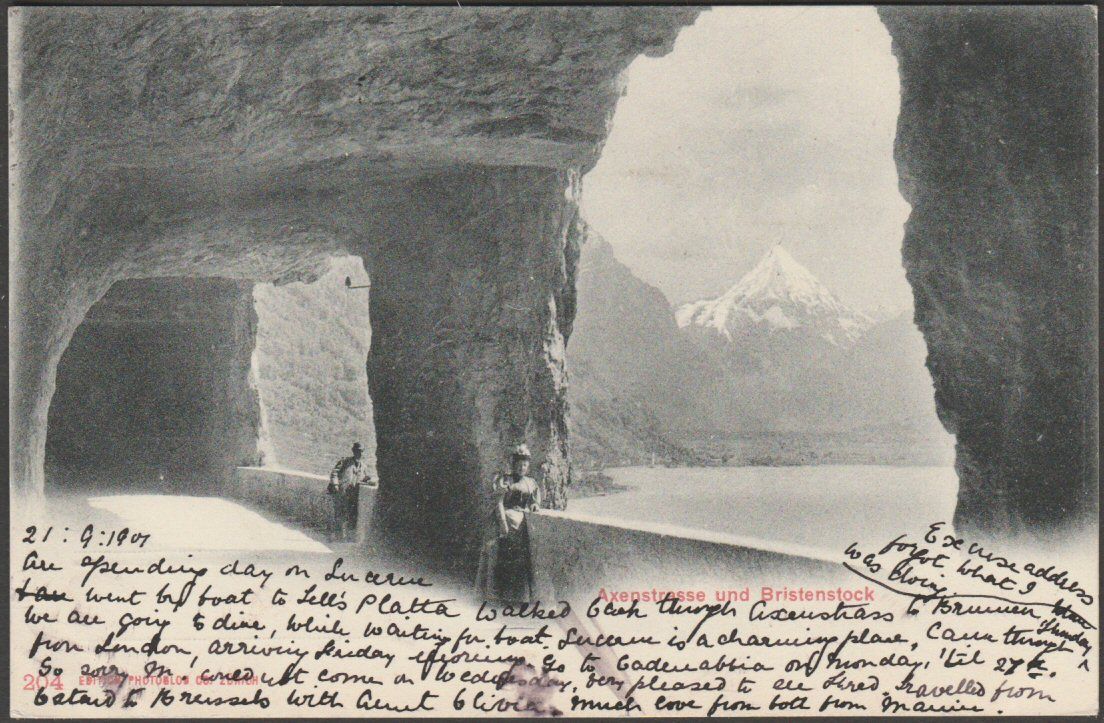 Axenstrasse und Bristenstock
204 EDITION PHOTOGLOB CO. ZÜRICH
21 : 9 : 1901
Are spending day on Lucerne
went by boat to Tell's Platta walked back through Axenstrass to Brunnen where
we are going to dine, while waiting for boat. Lucerne is a charming place, Came through
from London, arriving Friday morning. Go to Cadenabbia on Monday, 'til 27th.
So sorry M. could not come on Wednesday, very pleased to see Fred. Travelled from
Ostend to Brussels with Aunt Olivia. Much love from both from Mamie.
Excuse address
forgot what I
was doing